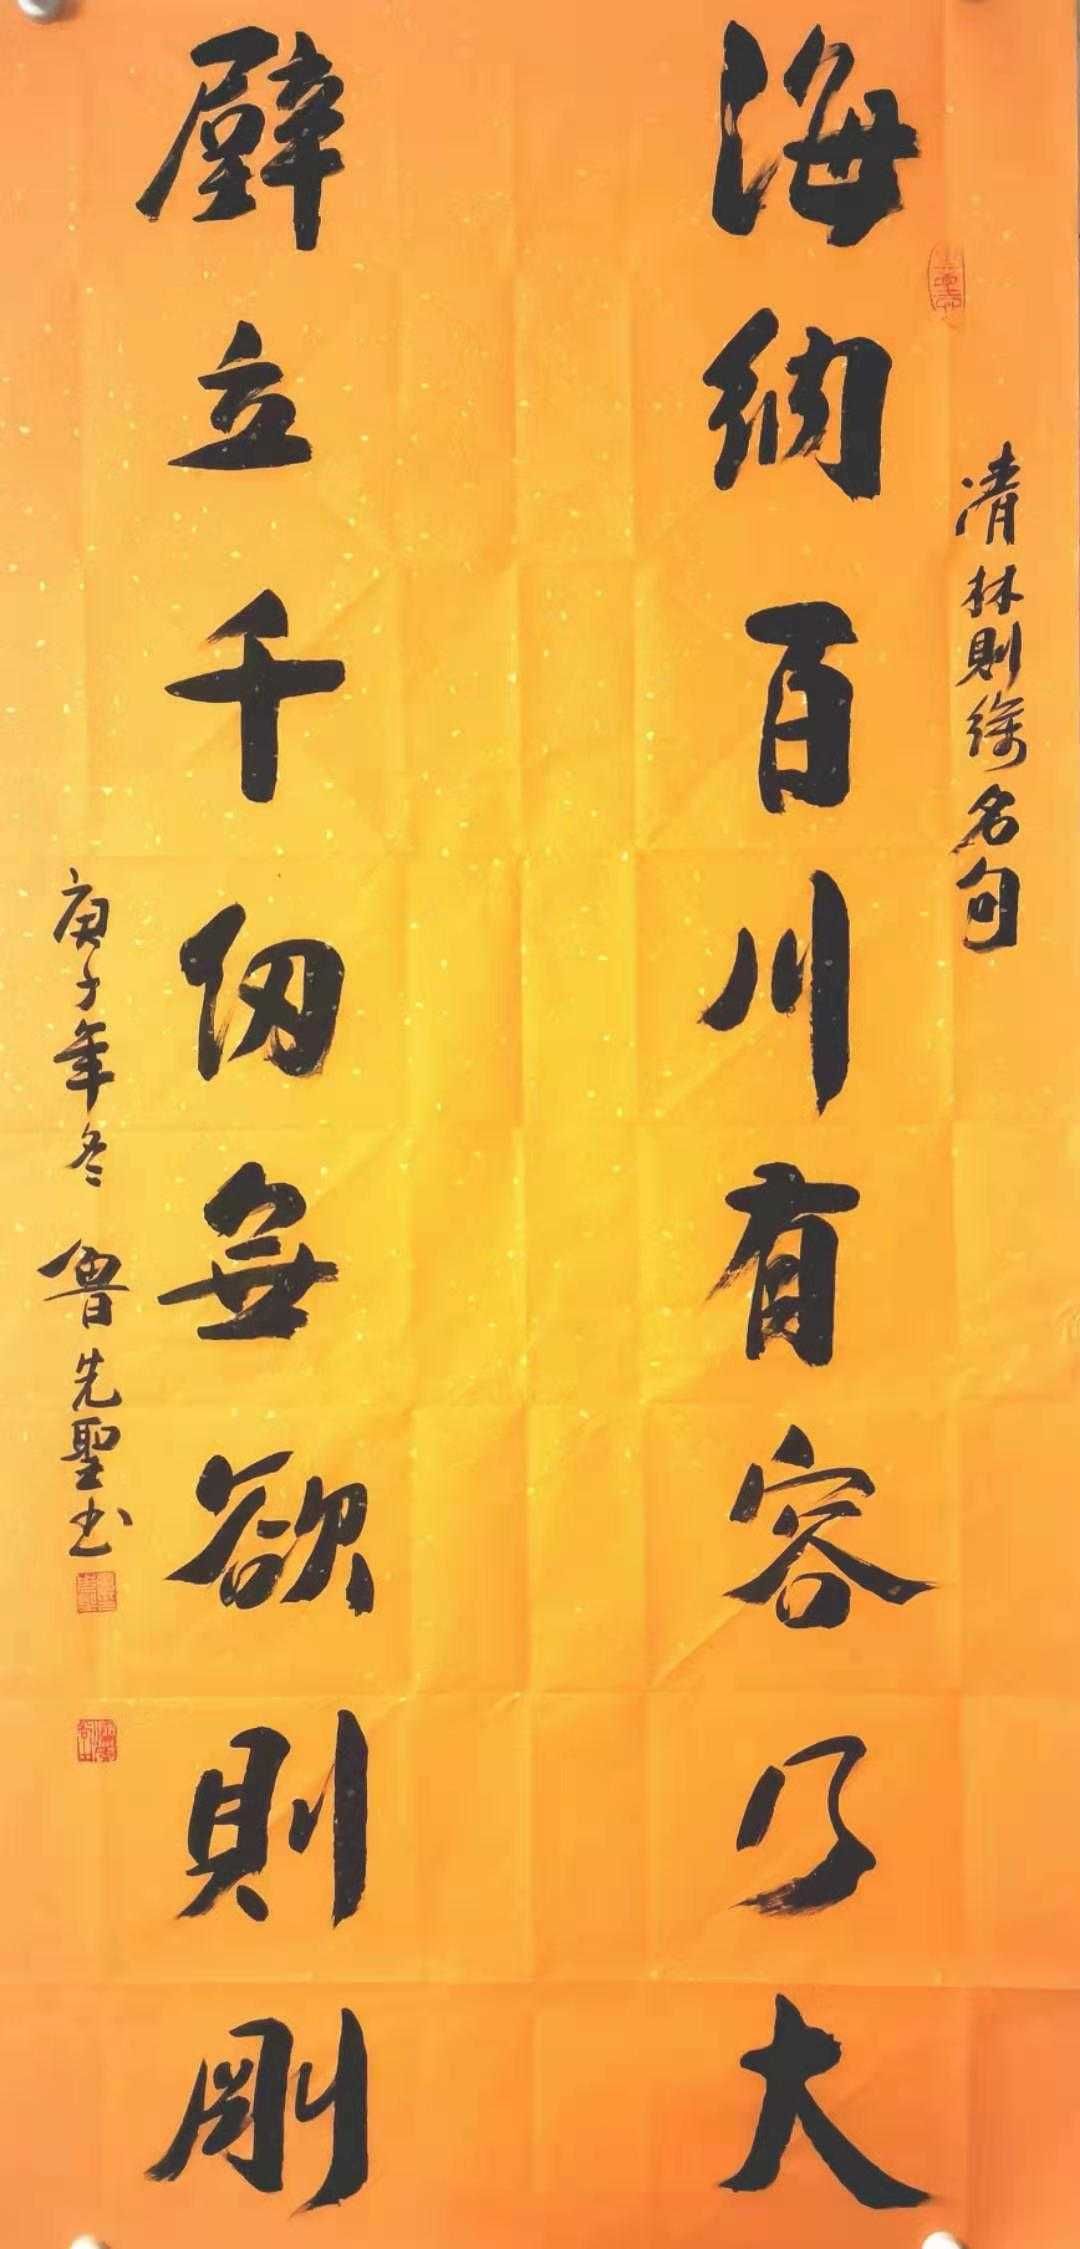 清林則徐名句
海納百川有容乃大
壁立千仞無欲則剛
庚子年冬 魯先聖书